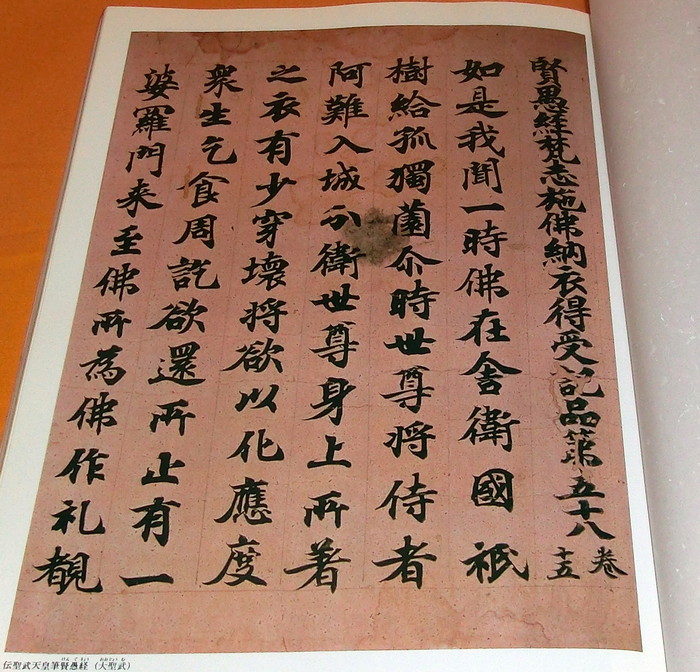 賢愚経梵志施佛納衣得受記品第五十八 卷十五
如是我聞一時佛在舎衛國祇
樹給孤獨薗尒時世尊將侍者
阿難入城分衛世尊身上所著
之衣有少穿壊將欲以化應度
衆生乞食周訖欲還所止有一
婆羅門来至佛所為佛作礼覩
伝聖武天皇筆賢愚経（大聖武）